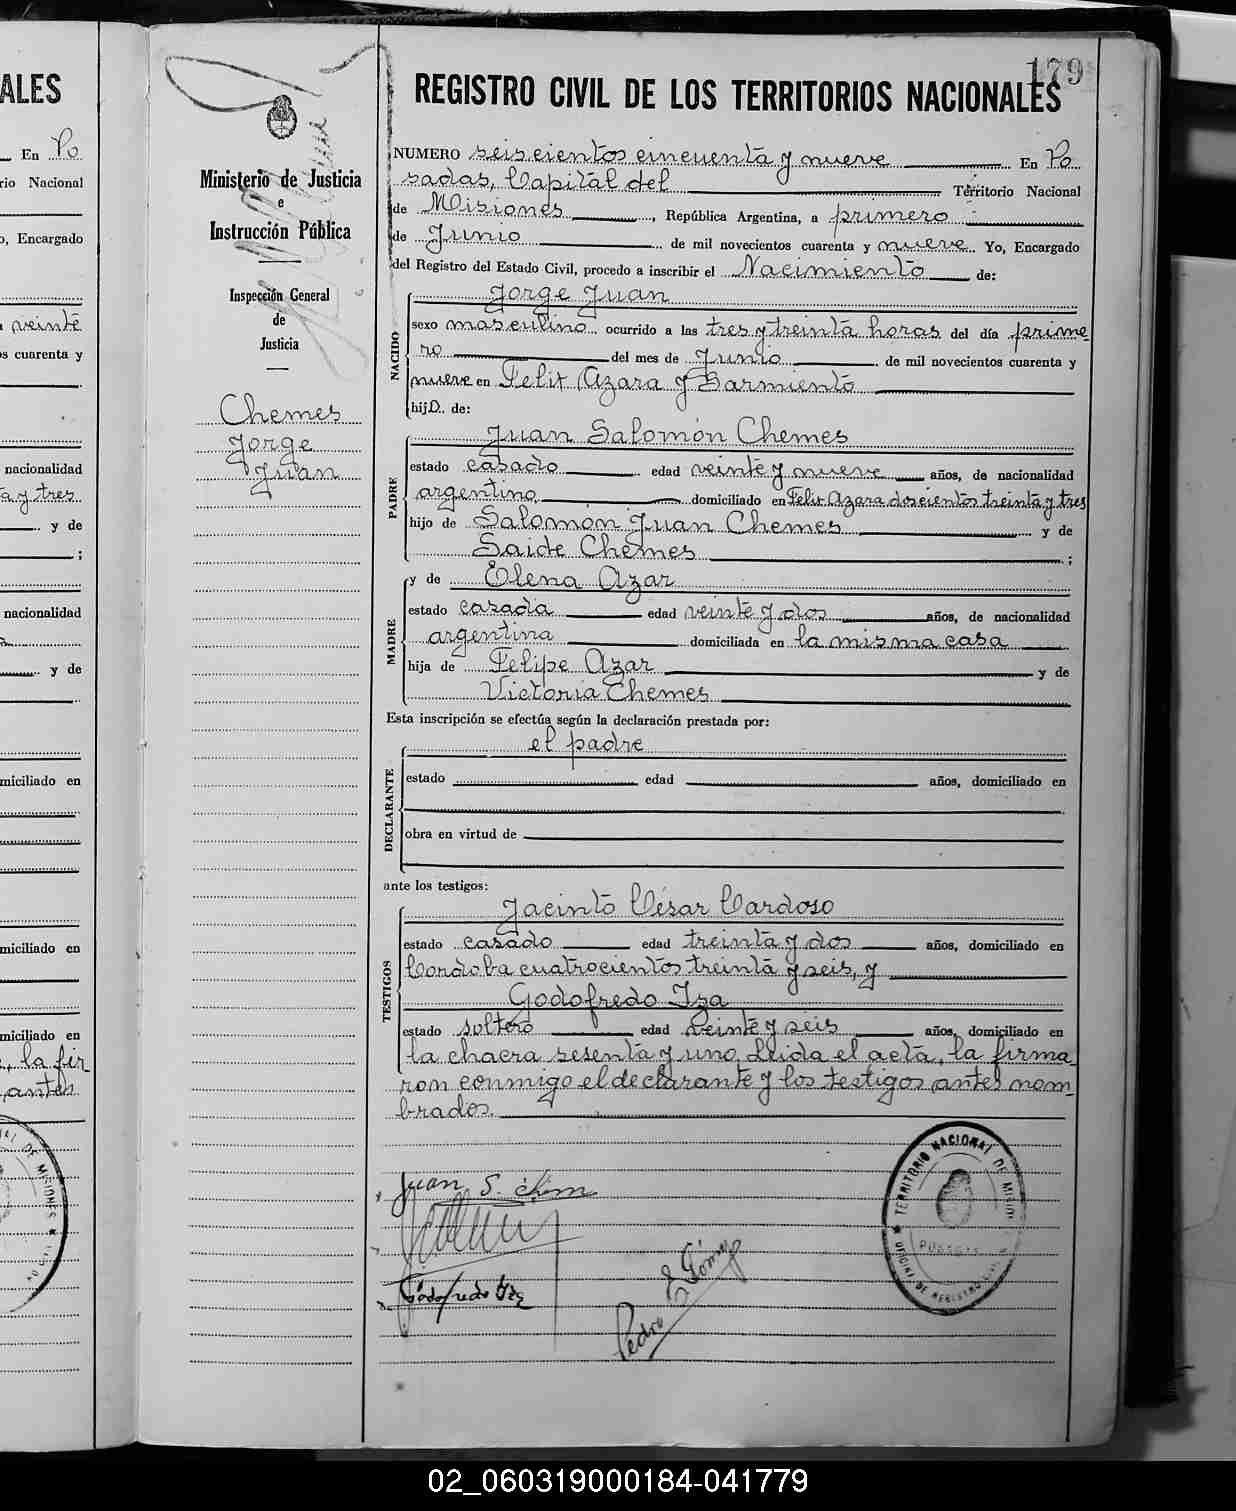 179
REGISTRO CIVIL DE LOS TERRITORIOS NACIONALES
Ministerio de Justicia
e
Instrucción Pública
Inspección General
de
Justicia
Chemes
Jorge
Juan
NUMERO seiscientos cincuenta y nueve En Po
sadas, Capital del Territorio Nacional
de Misiones, República Argentina, a primero
de Junio de mil novecientos cuarenta y nueve Yo, Encargado
del Registro del Estado Civil, procedo a inscribir el Nacimiento de:
NACIDO
Jorge Juan
sexo masculino ocurrido a las tres y treinta horas del día prime
ro del mes de Junio de mil novecientos cuarenta y
nueve en Felix Azara y Sarmiento
hijo de:
PADRE
Juan Salomón Chemes
estado casado edad veinte y nueve años, de nacionalidad
argentino domiciliado en Felix Azara doscientos treinta y tres
hijo de Salomón Juan Chemes y de
Saide Chemes ;
MADRE
y de Elena Azar
estado casada edad veinte y dos años, de nacionalidad
argentina domiciliada en la misma casa
hija de Felipe Azar y de
Victoria Chemes
Esta inscripción se efectúa según la declaración prestada por:
DECLARANTE
el padre
estado edad años, domiciliado en
obra en virtud de
ante los testigos:
TESTIGOS
Jacinto César Cardoso
estado casado edad treinta y dos años, domiciliado en
Cordoba cuatrocientos treinta y seis, y
Godofredo Iza
estado soltero edad veinte y seis años, domiciliado en
la chacra sesenta y uno. Leida el acta, la firma
ron conmigo el declarante y los testigos antes nom
brados.
Juan S.
Godofredo Iza
Pedro E Gómez
TERRITORIO NACIONAL DE MISIONES
POSADAS
OFICINA DE REGISTRO CIVIL
ALES
En Po
rio Nacional
o, Encargado
veinte
os cuarenta y
nacionalidad
ta y tres
y de
;
nacionalidad
y de
miciliado en
miciliado en
miciliado en
la fir
antes
02_060319000184-041779